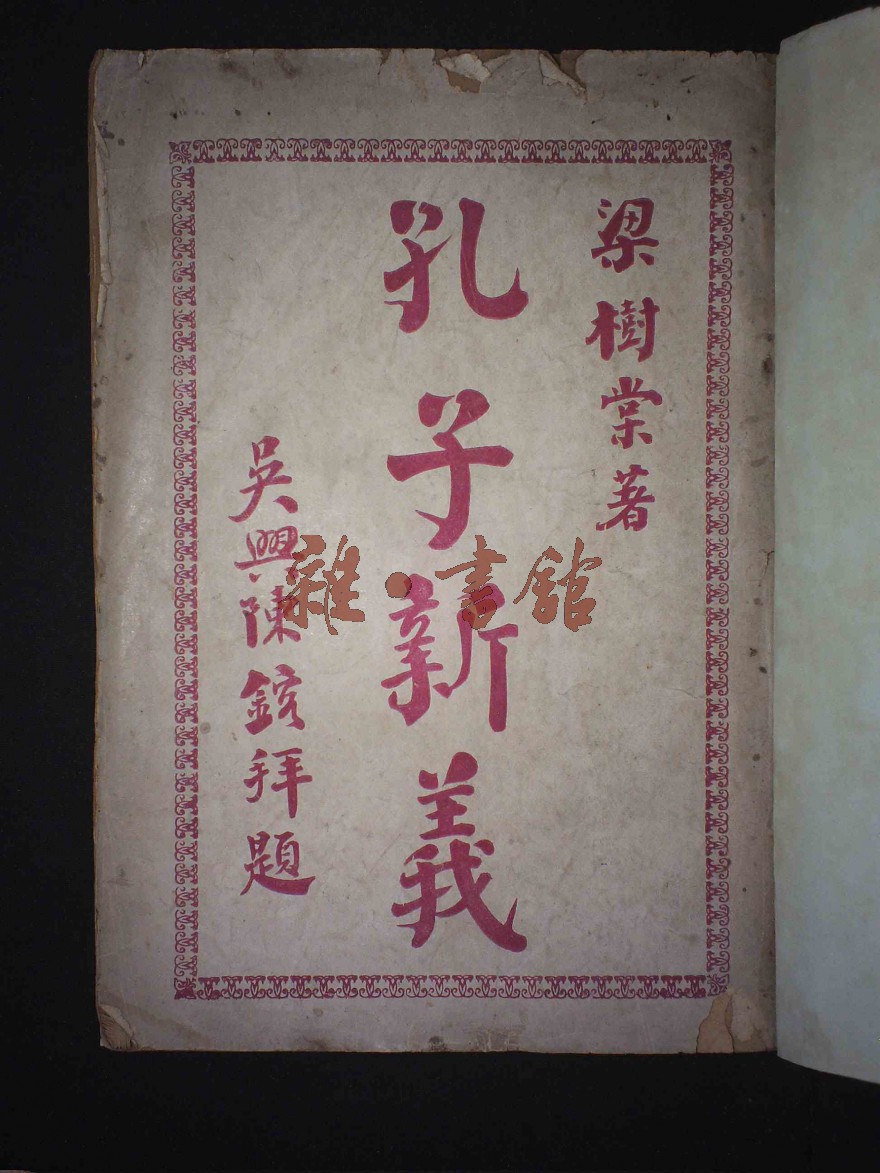 梁樹棠著
孔子新義
吳興陳鋐拜題
雜·書館